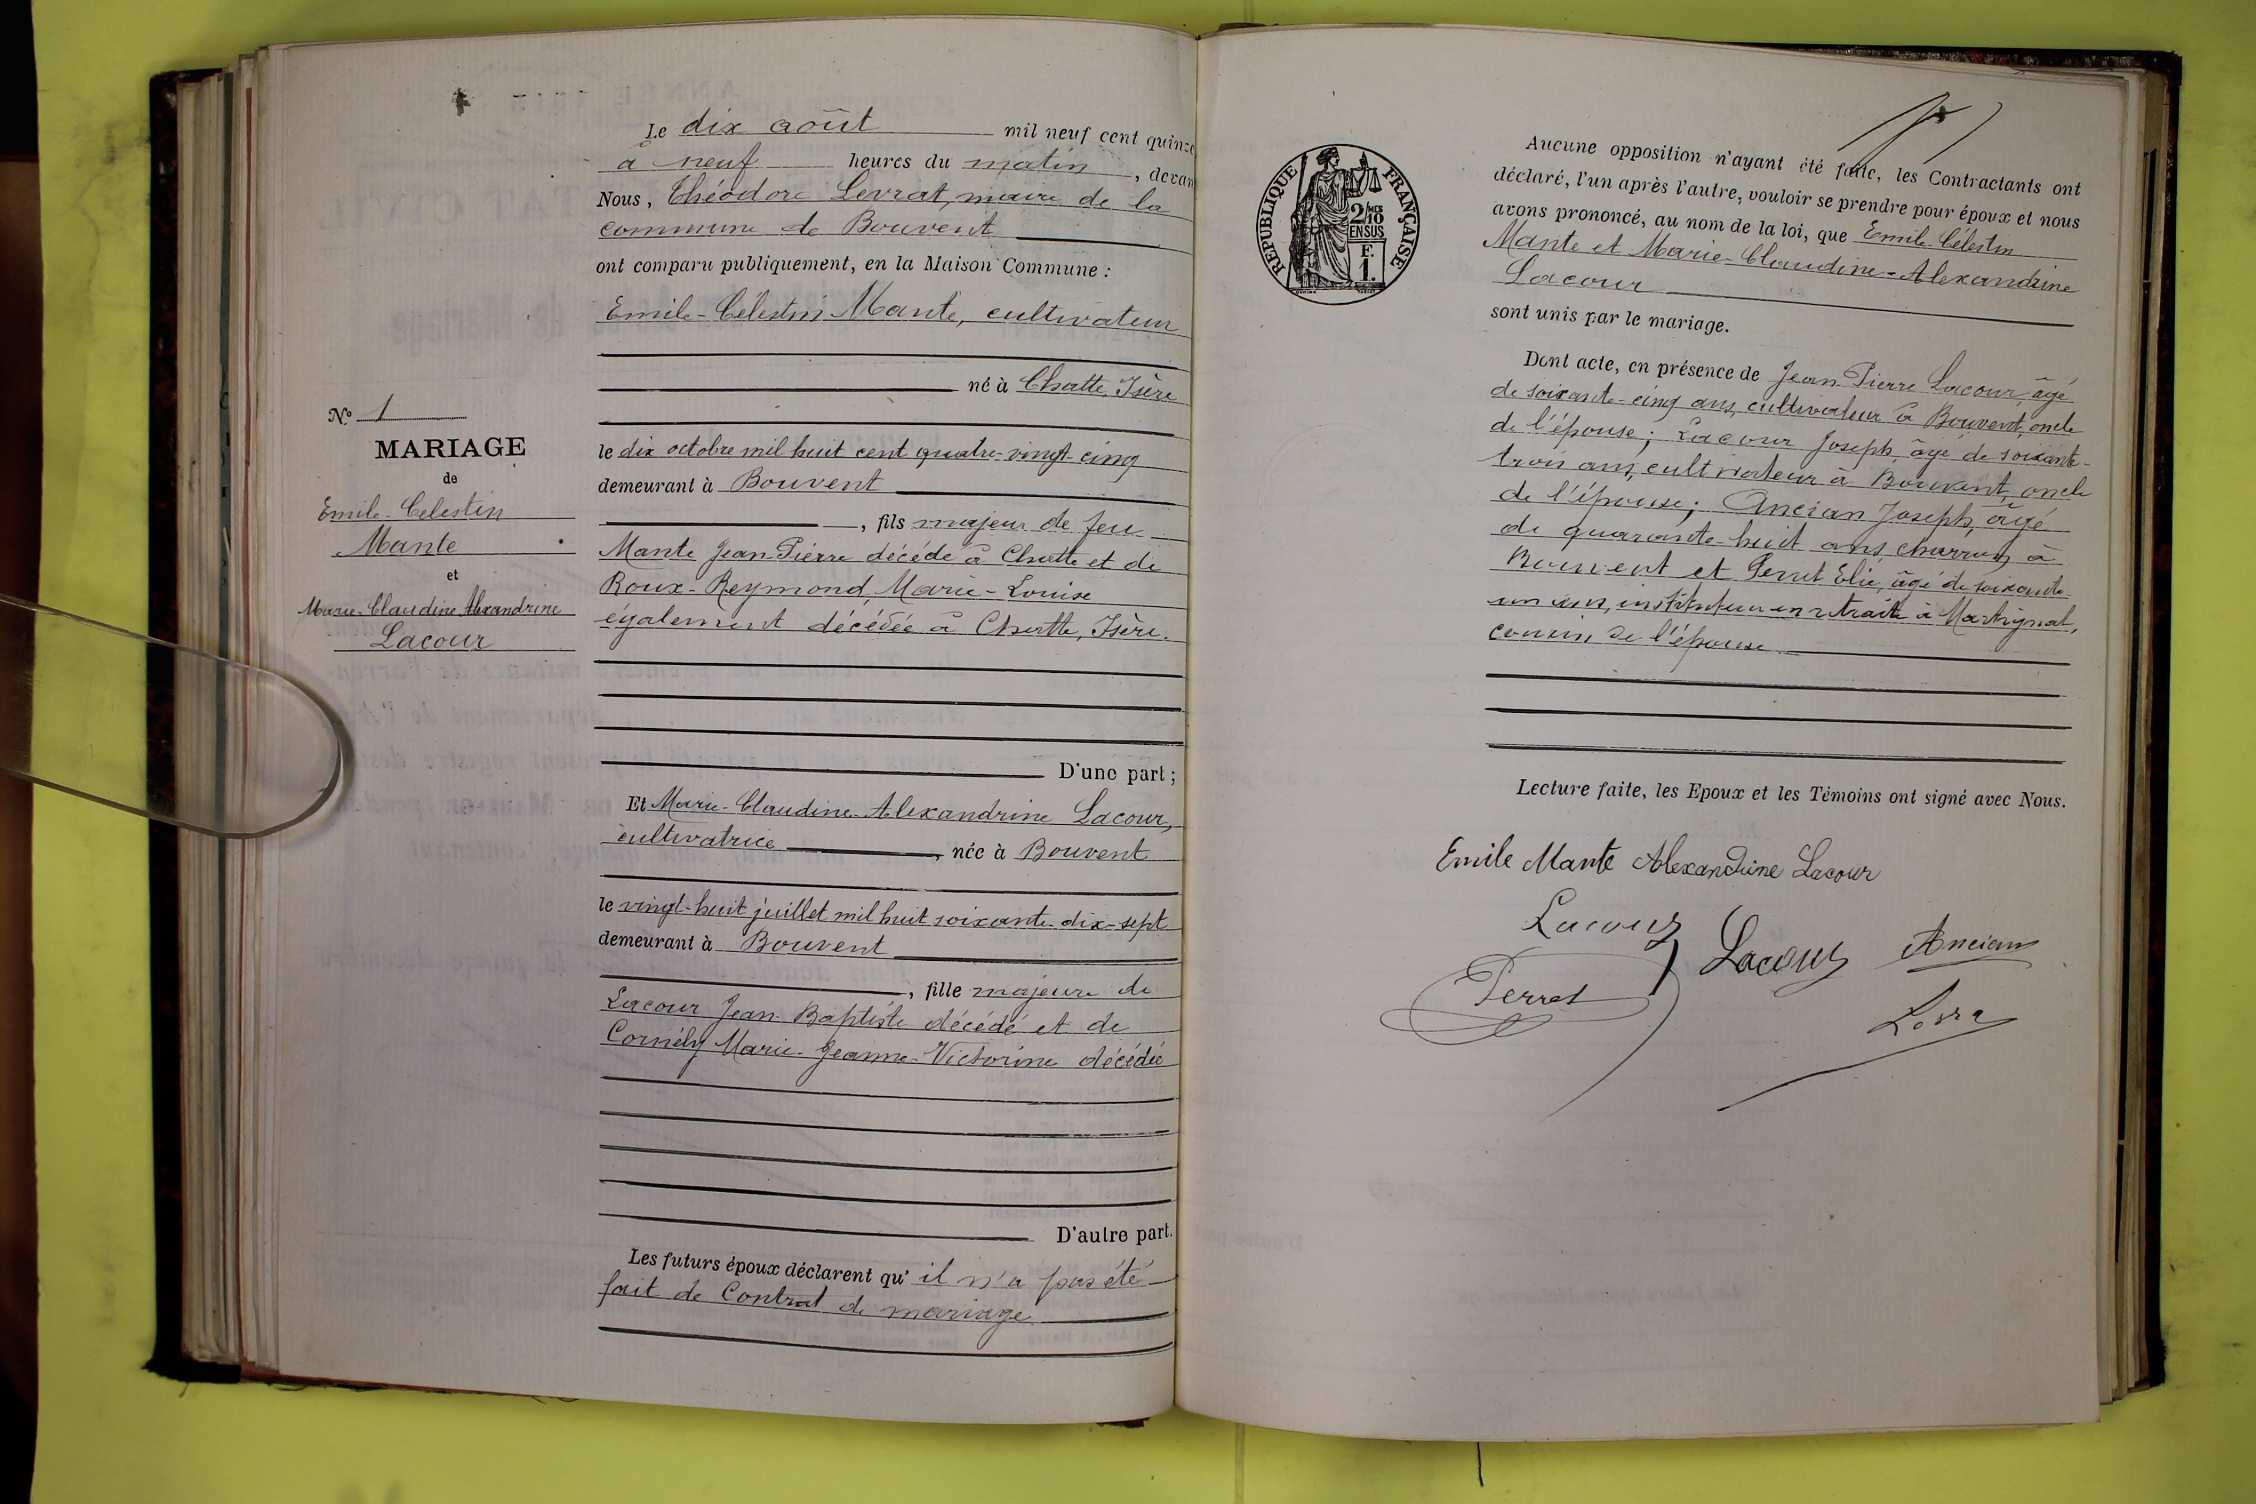 Le dix août mil neuf cent quinze
à neuf heures du matin, devan
Nous, Théodore Levrat, maire de la
commune de Bouvent
ont comparu publiquement, en la Maison Commune :
Emile-Célestin Mante, cultivateur
né à Chatte, Isère
le dix octobre mil huit cent quatre-vingt-cinq
demeurant à Bouvent
, fils majeur de feu
Mante Jean-Pierre décédé à Chatte et de
Roux-Reymond, Marie-Louise
également décédée à Chatte, Isère.
D'une part ;
Et Marie-Claudine-Alexandrine Lacour,
cultivatrice, née à Bouvent
le vingt-huit juillet mil huit soixante-dix-sept
demeurant à Bouvent
, fille majeure de
Lacour Jean-Baptiste décédé et de
Cornély Marie-Jeanne-Victorine décédée
D'autre part.
Les futurs époux déclarent qu'il n'a pas été
fait de Contrat de mariage
N° 1
MARIAGE
de
Emile-Celestin
Mante
et
Marie-Claudine Alexandrine
Lacour
RÉPUBLIQUE FRANÇAISE
2/10
EN SUS
F.
1.
Aucune opposition n'ayant été faite, les Contractants ont
déclaré, l'un après l'autre, vouloir se prendre pour époux et nous
avons prononcé, au nom de la loi, que Emile-Célestin
Mante et Marie-Claudine-Alexandrine
Lacour
sont unis par le mariage.
Dont acte, en présence de Jean-Pierre Lacour, âgé
de soixante-cinq ans, cultivateur à Bouvent, oncle
de l'épouse ; Lacour Joseph, âgé de soixante-
trois ans, cultivateur à Bouvent, oncle
de l'épouse ; Ancian Joseph, âgé
de quarante-huit ans, charron, à
Bouvent et Perret Elie, âgé de soixante-
un ans, instituteur en retraite à Martignat,
cousin de l'épouse.
Lecture faite, les Epoux et les Témoins ont signé avec Nous.
Emile Mante Alexandrine Lacour
Lacour Lacour Ancian
Perret